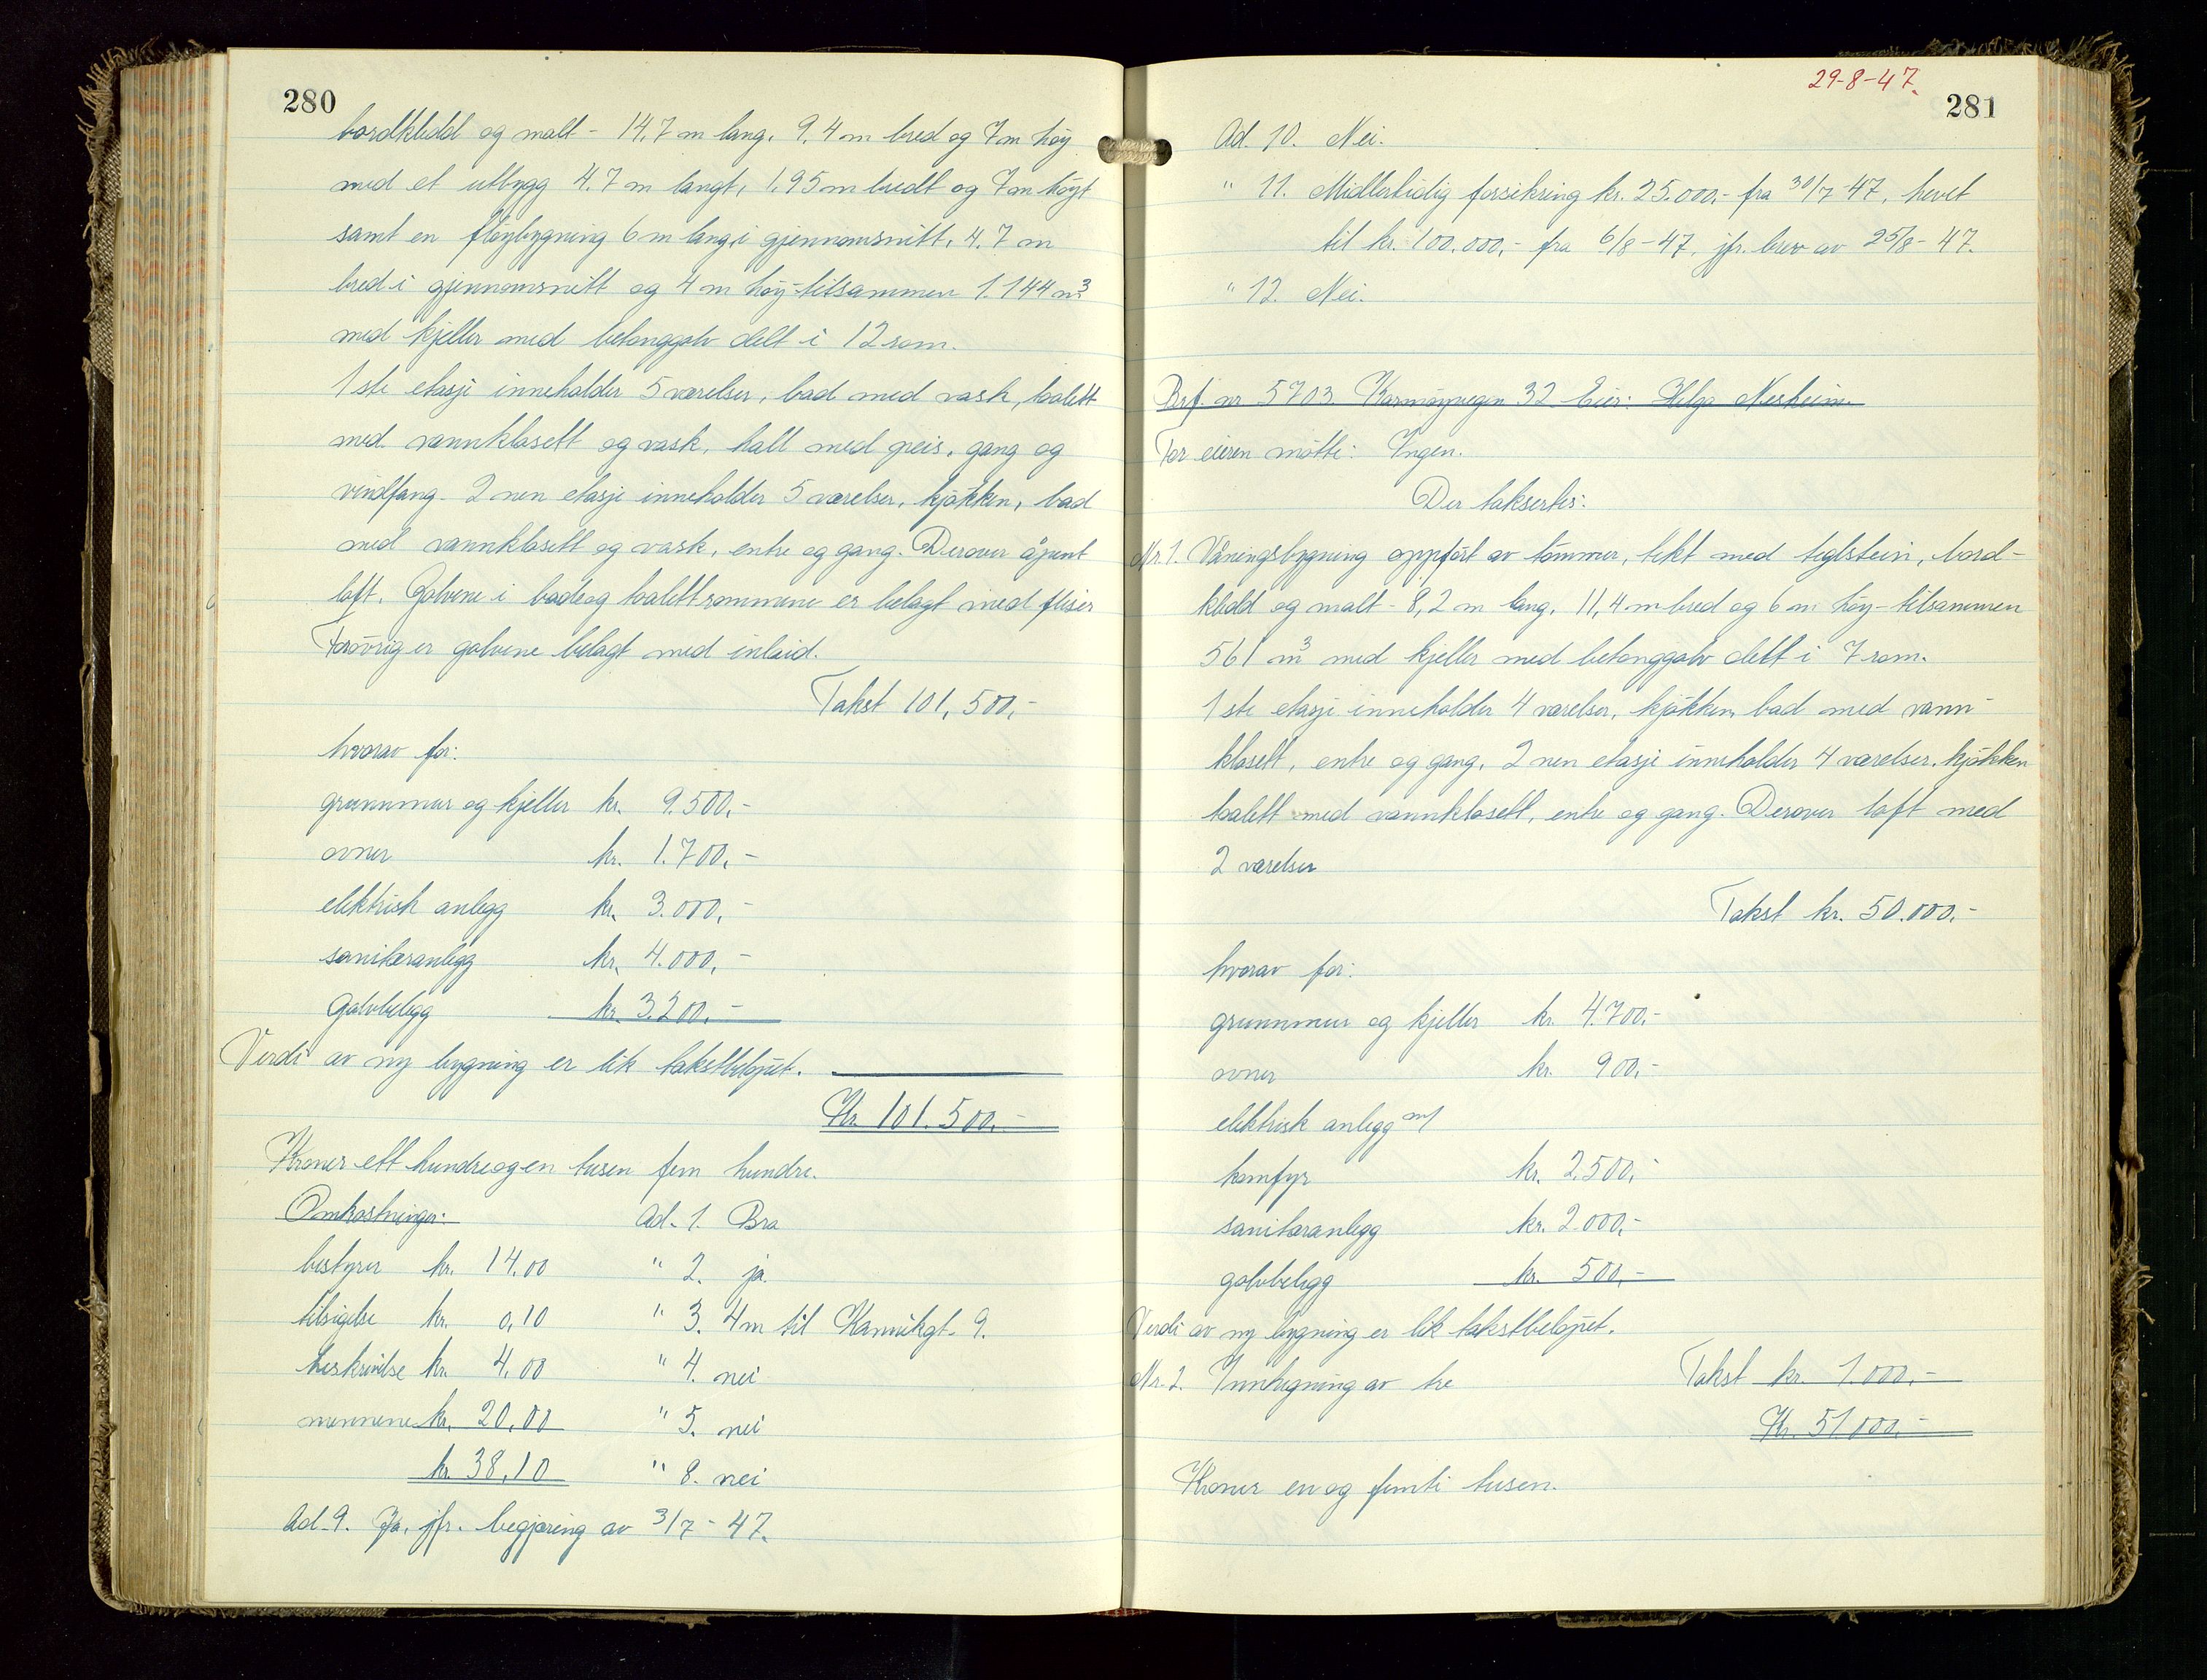 280
bordkledd og malt - 14,7 m lang, 9,4 m bred og 7 m høy
med et utbygg 4,7 m langt, 1,95 m bredt og 7 m høyt
samt en fløybygning 6 m lang i gjennomsnitt, 4,7 m
bred i gjennomsnitt og 4 m høy - tilsammen 1.144 m³
med kjeller med betonggolv delt i 12 rom.
1ste etasje inneholder 5 værelser, bad med vask, toalett
med vannklosett og vask, hall med peis, gang og
vindfang. 2nen etasje inneholder 5 værelser, kjøkken, bad
med vannklosett og vask, entre og gang. Derover åpent
loft. Golvene i bade og toalettrommene er belagt med fliser
Forøvrig er golvene belagt med inlaid.
Takst 101,500,-
hvorav for:
grunnmur og kjeller kr. 9.500,-
ovner kr. 1.700,-
elektrisk anlegg kr. 3.000,-
sanitæranlegg kr. 4.000,-
Golvbelegg kr. 3.200,-
Verdi av ny bygning er lik takstbeløpet.
Kr. 101.500,-
Kroner ett hundreogen tusen fem hundre.
Omkostninger: Ad. 1. Bra
bestyrer kr. 14,00 " 2. ja.
tilsigelse kr. 0,10 " 3. 4m til Kannikgt. 9.
beskrivelse kr. 4,00 " 4. nei
mennene kr. 20,00 " 5. nei
kr. 38,10 " 8. nei
Ad. 9. Ja, jfr. begjæring av 3/7 - 47.
29-8-47.
281
Ad. 10. Nei.
" 11. Midlertidig forsikring kr. 25.000,- fra 30/7-47, hevet
til kr. 100.000,- fra 6/8-47, jfr. brev av 25/8-47.
" 12. Nei.
Brf. nr 5703 Karmøyvegen 32 Eier: Helga Nesheim
For eieren møtte: Ingen.
Der taksertes:
Nr. 1. Våningsbygning oppført av tømmer, tekt med teglstein, bord-
kledd og malt - 8,2 m lang, 11,4 m bred og 6 m høy - tilsammen
561 m³ med kjeller med betonggolv delt i 7 rom.
1ste etasje inneholder 4 værelser, kjøkken, bad med vann-
klosett, entre og gang, 2nen etasje inneholder 4 værelser, kjøkken
toalett med vannklosett, entre og gang. Derover loft med
2 værelser
Takst kr. 50.000,-
hvorav for:
grunnmur og kjeller kr. 4.700,-
ovner kr. 900,-
elektrisk anlegg m/
komfyr kr. 2.500,-
sanitæranlegg kr. 2.000,-
golvbelegg kr. 500,-
Verdi av ny bygning er lik takstbeløpet.
Nr. 2. Innhegning av tre Takst kr. 1.000,-
Kr. 51.000,-
Kroner en og femti tusen.